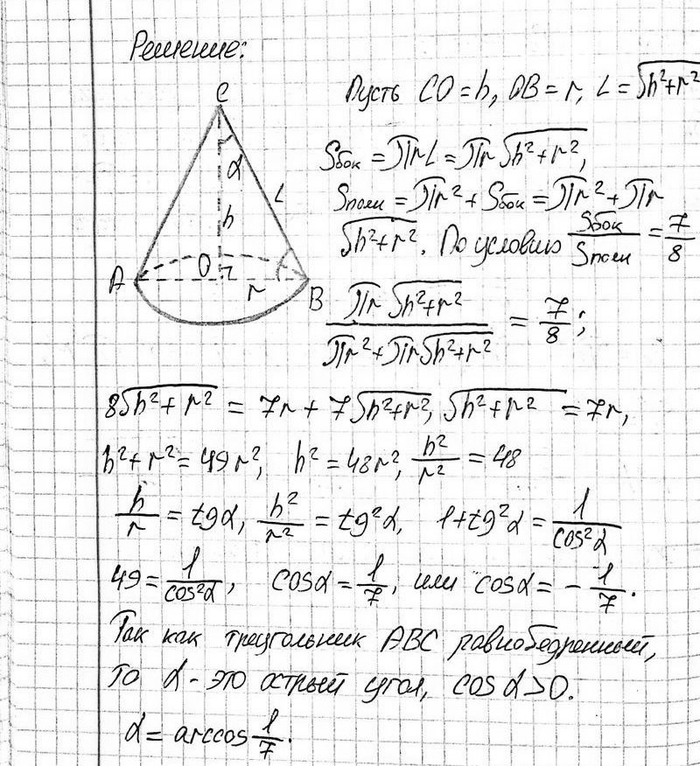 Решение:
C
α
L
h
O
A
r
B
Пусть CO = h, OB = r, L = √(h²+r²)
Sбок = πrL = πr√(h²+r²),
Sполн = πr² + Sбок = πr² + πr
√(h²+r²). По условию Sбок/Sполн = 7/8
πr√(h²+r²)/(πr²+πr√(h²+r²)) = 7/8;
8√(h²+r²) = 7r + 7√(h²+r²), √(h²+r²) = 7r,
h²+r² = 49r², h² = 48r², h²/r² = 48
h/r = tgα, h²/r² = tg²α, 1+tg²α = 1/cos²α
49 = 1/cos²α, cosα = 1/7, или cosα = -1/7.
Так как треугольник ABC равнобедренный,
то α - это острый угол, cosα>0.
α = arccos 1/7.